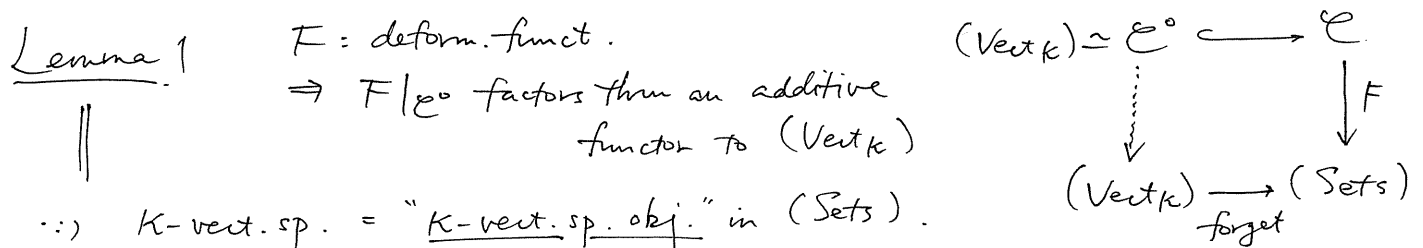 Lemma 1 F : deform. funct.
⇒ F|𝒞⁰ factors thru an additive
functor to (Vect K)
∵) K-vect. sp. = "K-vect. sp. obj." in (Sets).
(Vect K) ≃ 𝒞⁰ ↪ 𝒞
F
(Vect K) → (Sets)
forget